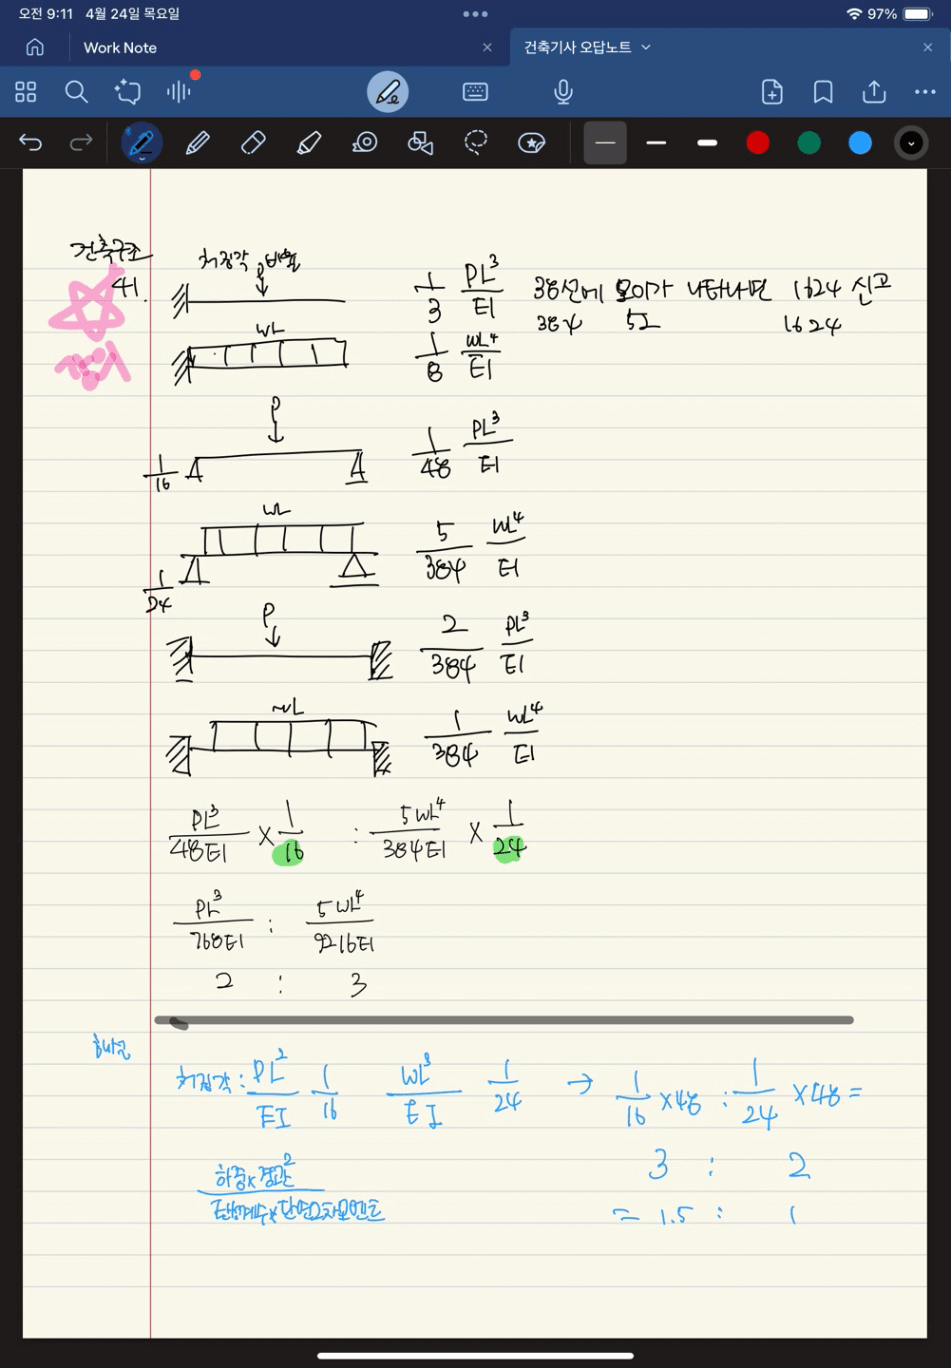 오전 9:11 4월 24일 목요일
97%
Work Note
건축기사 오답노트
건축구조
41.
처짐각, 비율
P
1/3 PL³/EI
38선에 오이가 나타나면 1624 신고
384 52 1624
WL
1/8 WL⁴/EI
P
1/16
1/48 PL³/EI
WL
1/24
5/384 WL⁴/EI
P
2/384 PL³/EI
WL
1/384 WL⁴/EI
PL³/48EI × 1/16 : 5WL⁴/384EI × 1/24
PL³/768EI : 5WL⁴/9216EI
2 : 3
처짐각: PL²/EI 1/16 WL³/EI 1/24 → 1/16 ×48 : 1/24 ×48 =
3 : 2
하중×경간²/탄성계수×단면2차모멘트
= 1.5 : 1